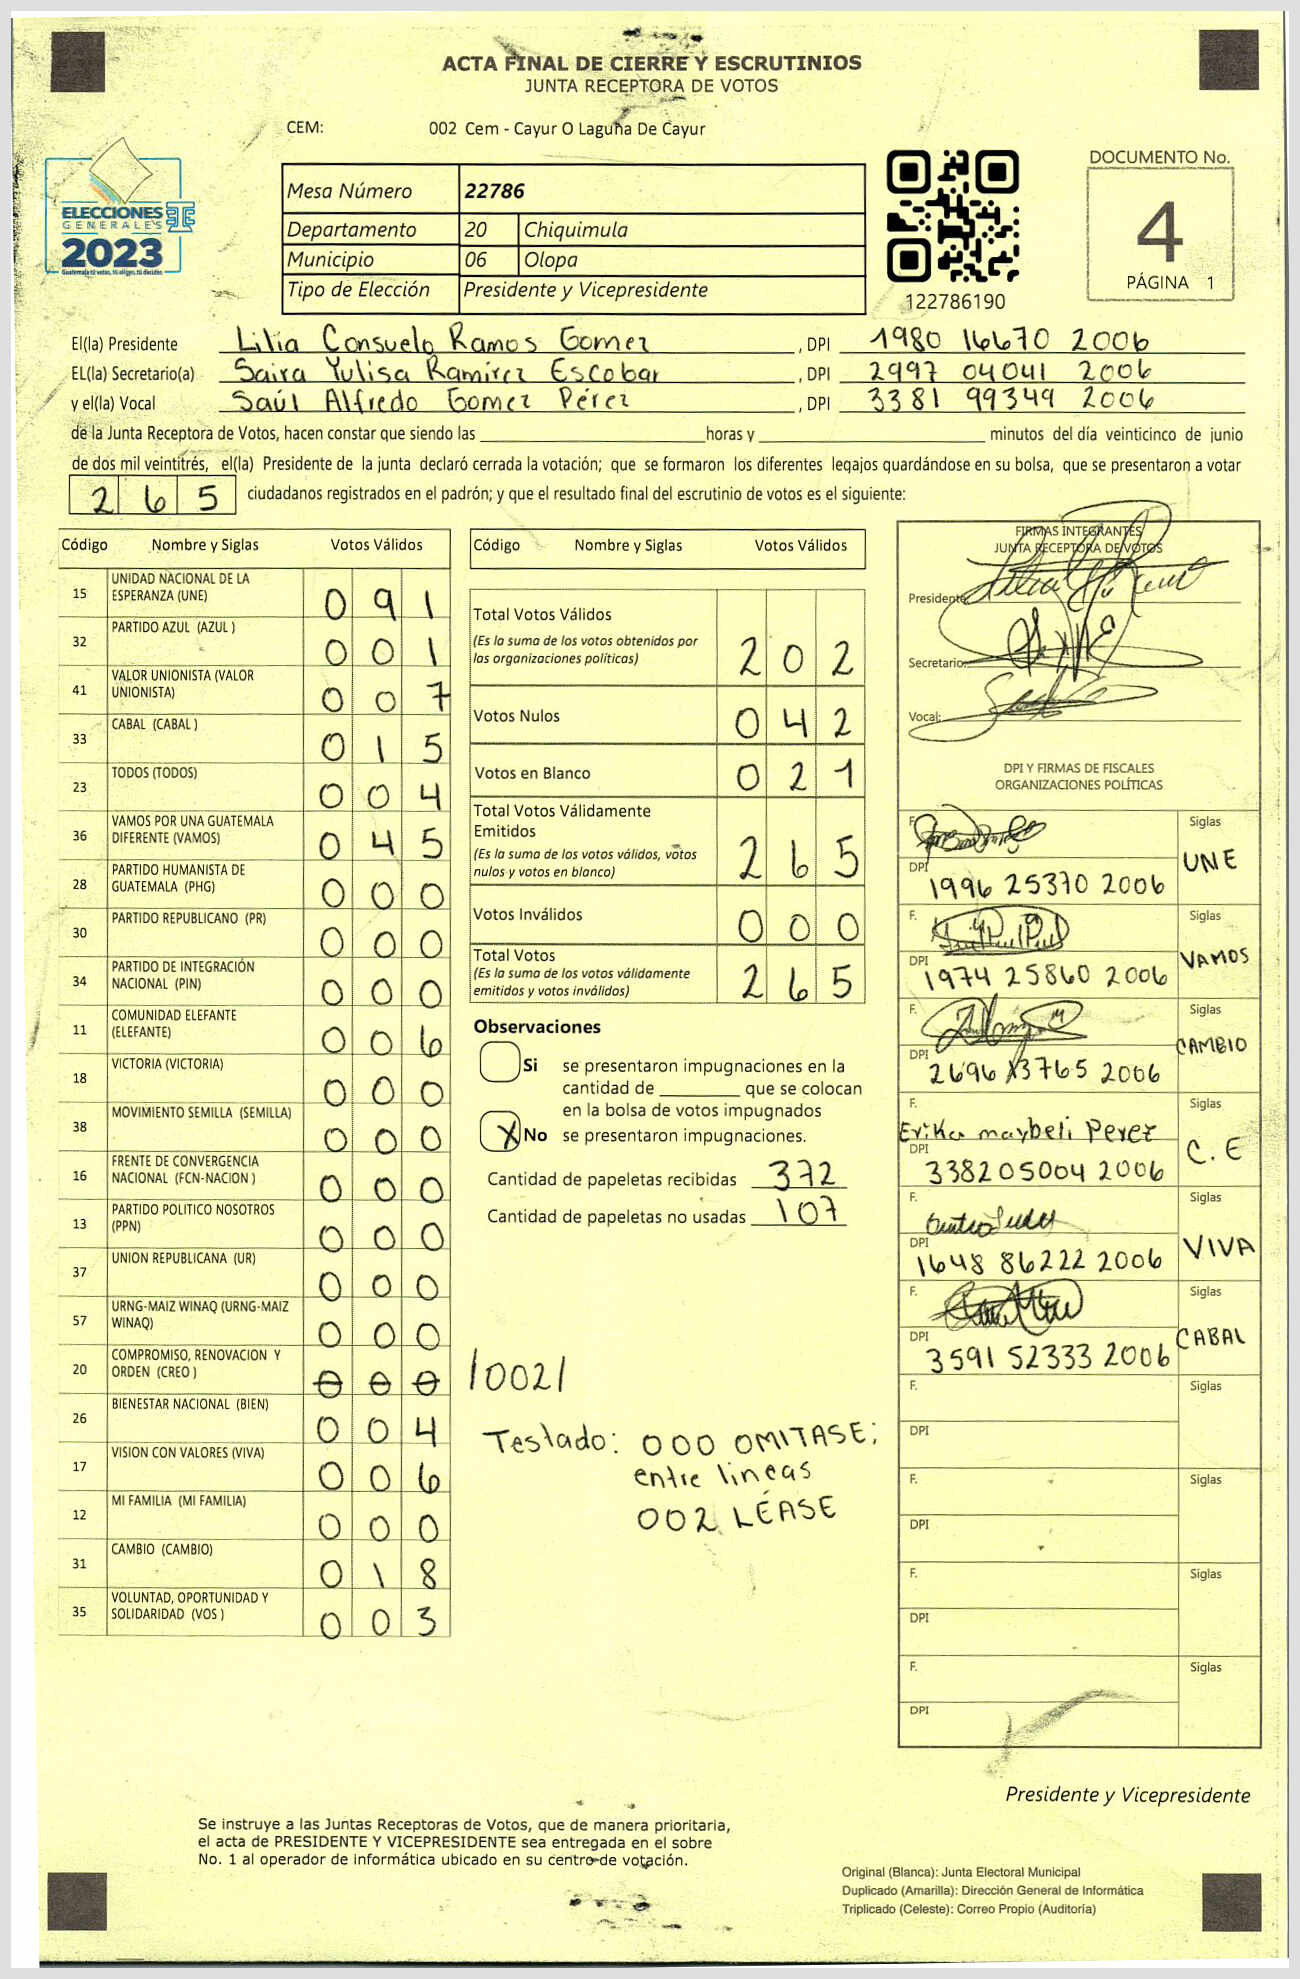 ACTA FINAL DE CIERRE Y ESCRUTINIOS
JUNTA RECEPTORA DE VOTOS
CEM: 002 Cem - Cayur O Laguna De Cayur
ELECCIONES
GENERALES
2023
Guatemala tú votas, tú eliges, tú decides
Mesa Número 22786
Departamento 20 Chiquimula
Municipio 06 Olopa
Tipo de Elección Presidente y Vicepresidente
122786190
DOCUMENTO No.
4
PÁGINA 1
El(la) Presidente Lilia Consuelo Ramos Gomez , DPI 1980 16670 2006
EL(la) Secretario(a) Saira Yulisa Ramírez Escobar , DPI 2997 04041 2006
y el(la) Vocal Saúl Alfredo Gomez Pérez , DPI 3381 99349 2006
de la Junta Receptora de Votos, hacen constar que siendo las ____ horas y ____ minutos del día veinticinco de junio
de dos mil veintitrés, el(la) Presidente de la junta declaró cerrada la votación; que se formaron los diferentes legajos guardándose en su bolsa, que se presentaron a votar
265 ciudadanos registrados en el padrón; y que el resultado final del escrutinio de votos es el siguiente:
Código Nombre y Siglas Votos Válidos
15 UNIDAD NACIONAL DE LA ESPERANZA (UNE) 091
32 PARTIDO AZUL (AZUL ) 001
41 VALOR UNIONISTA (VALOR UNIONISTA) 007
33 CABAL (CABAL ) 015
23 TODOS (TODOS) 004
36 VAMOS POR UNA GUATEMALA DIFERENTE (VAMOS) 045
28 PARTIDO HUMANISTA DE GUATEMALA (PHG) 000
30 PARTIDO REPUBLICANO (PR) 000
34 PARTIDO DE INTEGRACIÓN NACIONAL (PIN) 000
11 COMUNIDAD ELEFANTE (ELEFANTE) 006
18 VICTORIA (VICTORIA) 000
38 MOVIMIENTO SEMILLA (SEMILLA) 000
16 FRENTE DE CONVERGENCIA NACIONAL (FCN-NACION ) 000
13 PARTIDO POLITICO NOSOTROS (PPN) 000
37 UNION REPUBLICANA (UR) 000
57 URNG-MAIZ WINAQ (URNG-MAIZ WINAQ) 000
20 COMPROMISO, RENOVACION Y ORDEN (CREO ) 000 /002/
26 BIENESTAR NACIONAL (BIEN) 004
17 VISION CON VALORES (VIVA) 006
12 MI FAMILIA (MI FAMILIA) 000
31 CAMBIO (CAMBIO) 018
35 VOLUNTAD, OPORTUNIDAD Y SOLIDARIDAD (VOS ) 003
Código Nombre y Siglas Votos Válidos
Total Votos Válidos
(Es la suma de los votos obtenidos por las organizaciones políticas) 202
Votos Nulos 042
Votos en Blanco 021
Total Votos Válidamente Emitidos
(Es la suma de los votos válidos, votos nulos y votos en blanco) 265
Votos Inválidos 000
Total Votos
(Es la suma de los votos válidamente emitidos y votos inválidos) 265
Observaciones
Si se presentaron impugnaciones en la
cantidad de ____ que se colocan
en la bolsa de votos impugnados
X No se presentaron impugnaciones.
Cantidad de papeletas recibidas 372
Cantidad de papeletas no usadas 107
Testado: 000 OMITASE;
entre lineas
002 LÉASE
FIRMAS INTEGRANTES
JUNTA RECEPTORA DE VOTOS
Presidente:
Secretario:
Vocal:
DPI Y FIRMAS DE FISCALES
ORGANIZACIONES POLÍTICAS
F. Siglas UNE
DPI 1996 25370 2006
F. Siglas VAMOS
DPI 1974 25860 2006
F. Siglas CAMBIO
DPI 2696 13765 2006
F. Erika maybeli Perez Siglas C.E
DPI 338205004 2006
F. Siglas VIVA
DPI 1648 86222 2006
F. Siglas CABAL
DPI 3591 52333 2006
F. Siglas
DPI
F. Siglas
DPI
F. Siglas
DPI
F. Siglas
DPI
Presidente y Vicepresidente
Se instruye a las Juntas Receptoras de Votos, que de manera prioritaria,
el acta de PRESIDENTE Y VICEPRESIDENTE sea entregada en el sobre
No. 1 al operador de informática ubicado en su centro de votación.
Original (Blanca): Junta Electoral Municipal
Duplicado (Amarilla): Dirección General de Informática
Triplicado (Celeste): Correo Propio (Auditoría)